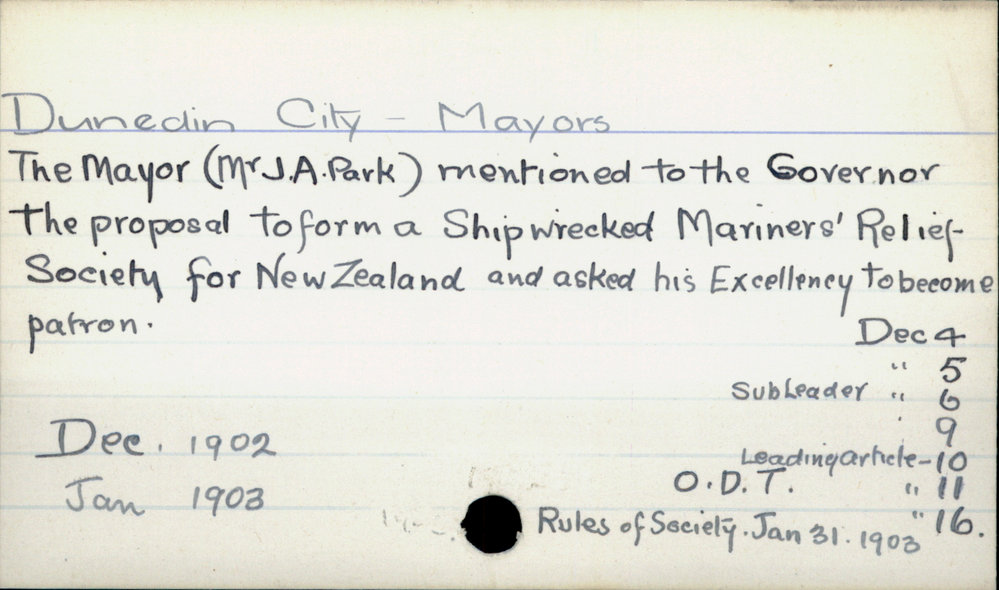 Dunedin City - Mayors
The Mayor (Mr J.A. Park) mentioned to the Governor
the proposal to form a Shipwrecked Mariners' Relief
Society for New Zealand and asked his Excellency to become
patron.
Dec 4
" 5
Sub Leader " 6
9
Dec. 1902
Leading article - 10
Jan 1903
O.D.T. " 11
" 16.
Rules of Society. Jan 31. 1903